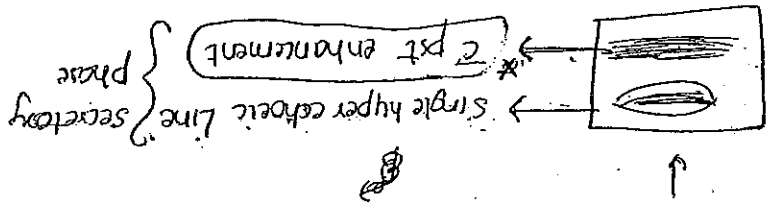 Single hyper echoeic Line } secretory phase
* c̄ pst enhancement